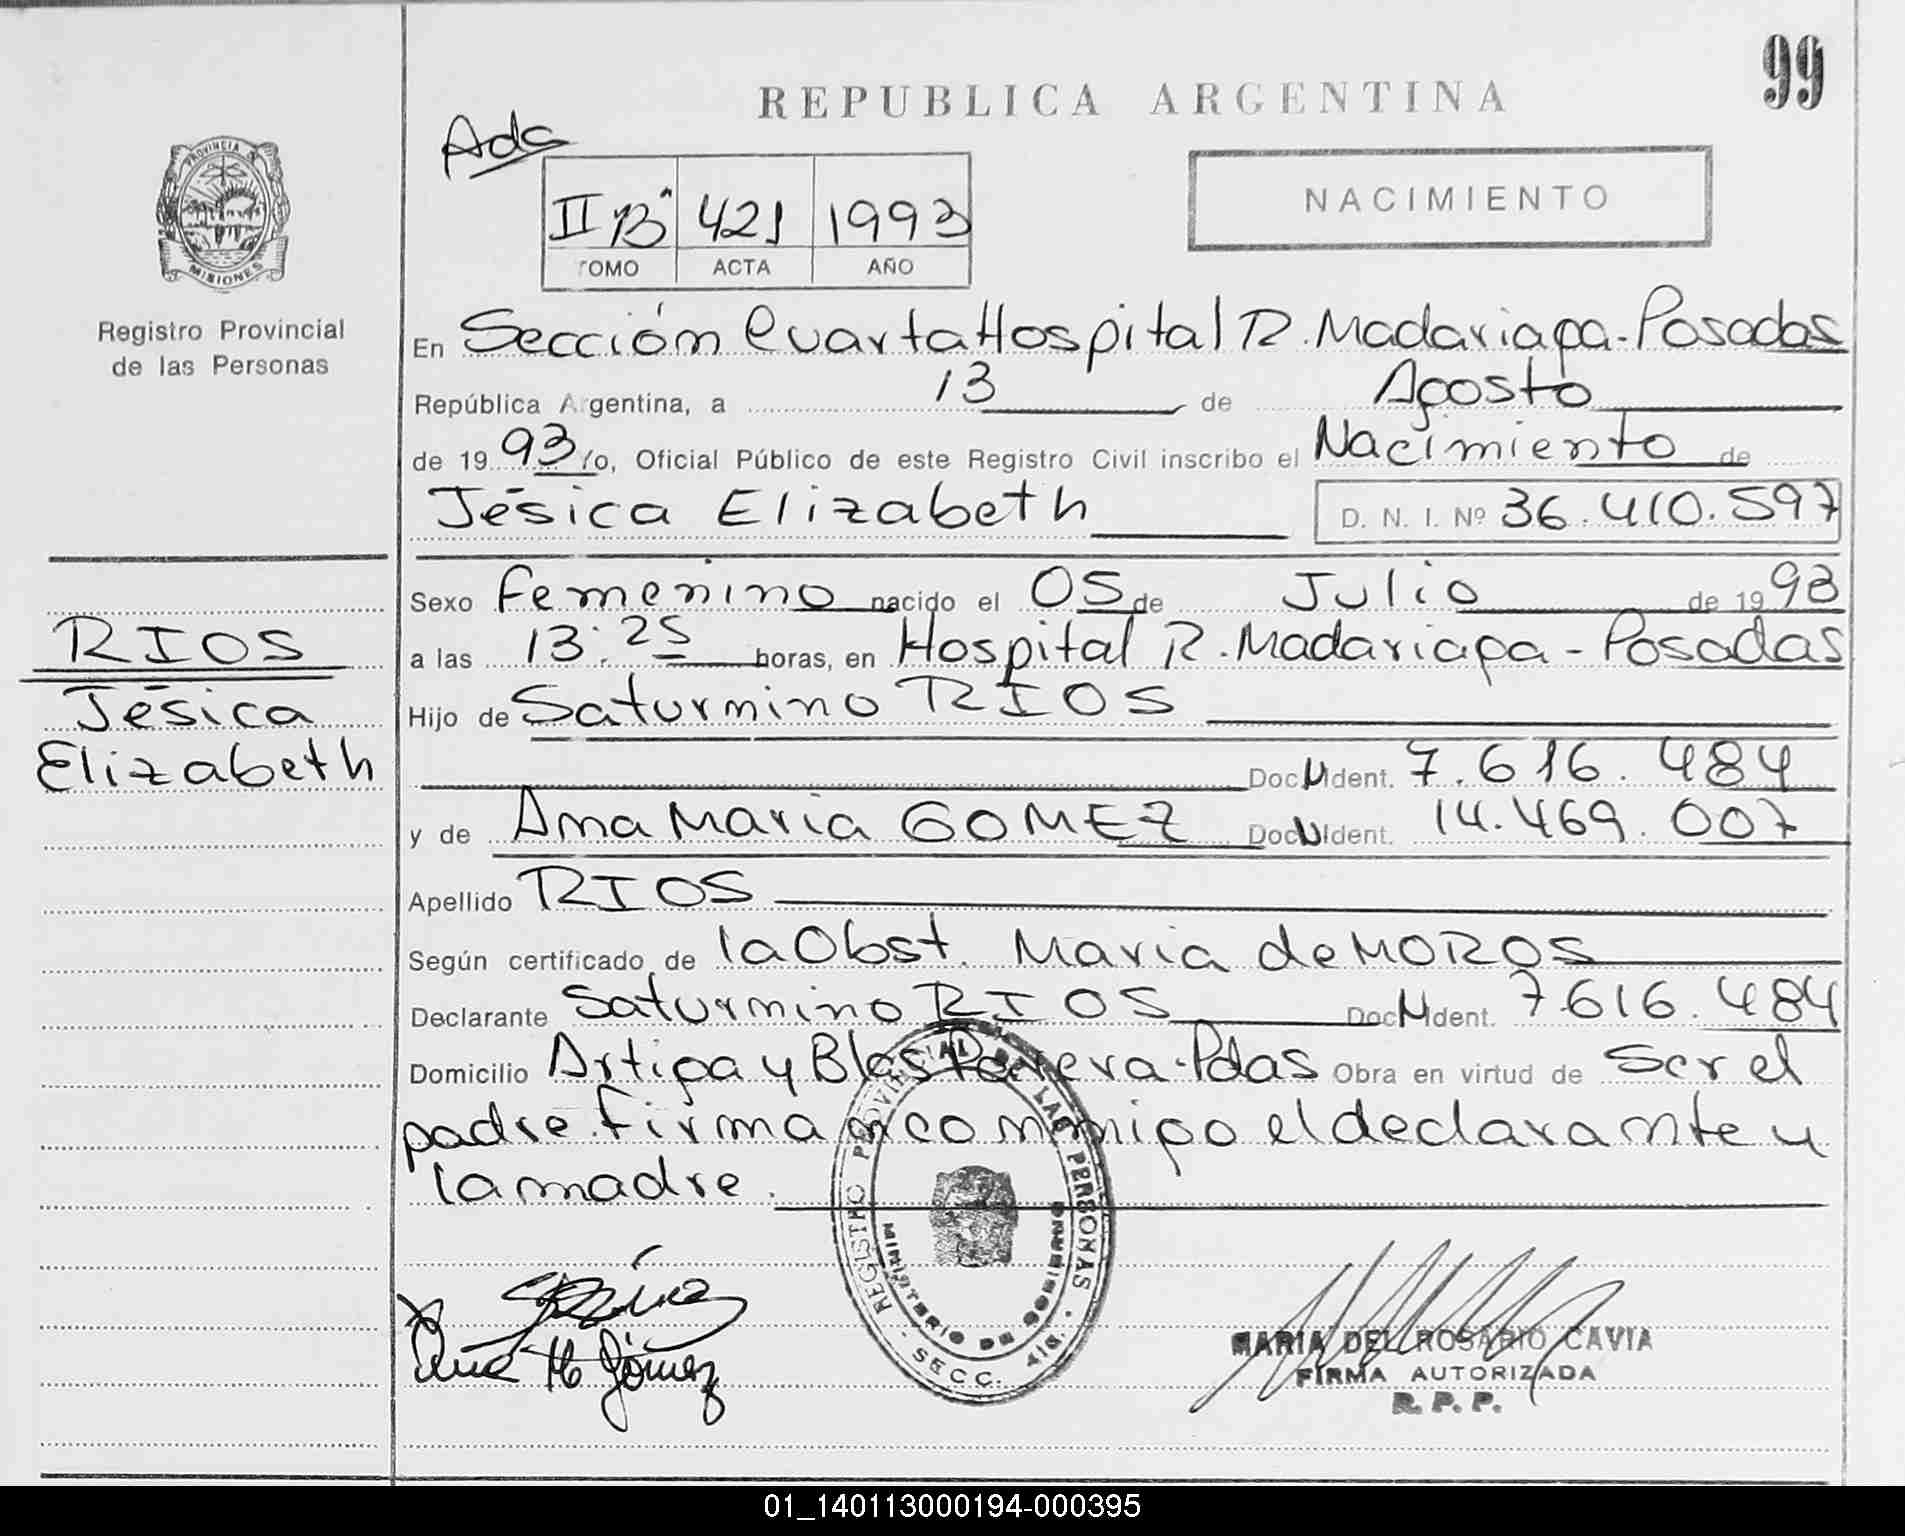 99
REPUBLICA ARGENTINA
Adc
PROVINCIA DE
MISIONES
Registro Provincial
de las Personas
II "B" 421 1993
TOMO ACTA AÑO
NACIMIENTO
En Sección Cuarta Hospital R. Madariaga - Posadas
República Argentina, a 13 de Agosto
de 1993 Yo, Oficial Público de este Registro Civil inscribo el Nacimiento de
Jésica Elizabeth D. N. I. Nº 36.410.597
Sexo Femenino nacido el 05 de Julio de 1993
RIOS
a las 13:25 horas, en Hospital R. Madariaga - Posadas
Jésica
Hijo de Saturnino RIOS
Elizabeth
Doc. Ident. 7.616.484
y de Ana Maria GOMEZ Doc. Ident. 14.469.007
Apellido RIOS
Según certificado de la Obst. Maria de MOROS
Declarante Saturnino RIOS Doc. Ident. 7.616.484
Domicilio Artiga y Blas Parera - Pdas Obra en virtud de Ser el
padre. Firman conmigo el declarante y
la madre.
REGISTRO PROVINCIAL DE LAS PERSONAS
MINISTERIO DE GOBIERNO
SECC. 4ta.
Ana M Gómez
MARIA DEL ROSARIO CAVIA
FIRMA AUTORIZADA
R. P. P.
01_140113000194-000395